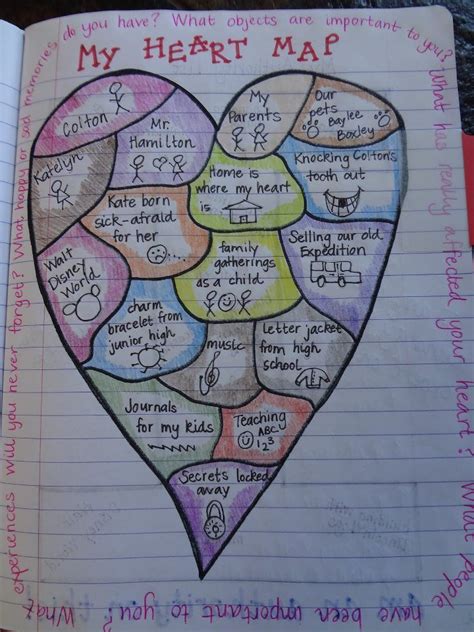 do you have? What objects are important to you?
MY HEART MAP
Colton
Mr.
Hamilton
My
Parents
Our
pets
Baylee
Boxley
Katelyn
Home is
where my heart
is
Knocking Colton's
tooth out
Kate born
sick-afraid
for her
family
gatherings
as a child
Selling our old
Expedition
Walt
Disney
World
charm
bracelet from
junior high
music
Letter jacket
from high
school
Journals
for my kids
Teaching
ABC
123
Secrets locked
away
What has really affected your heart? What people
have been important to you? What
experiences will you never forget? What happy or sad memories